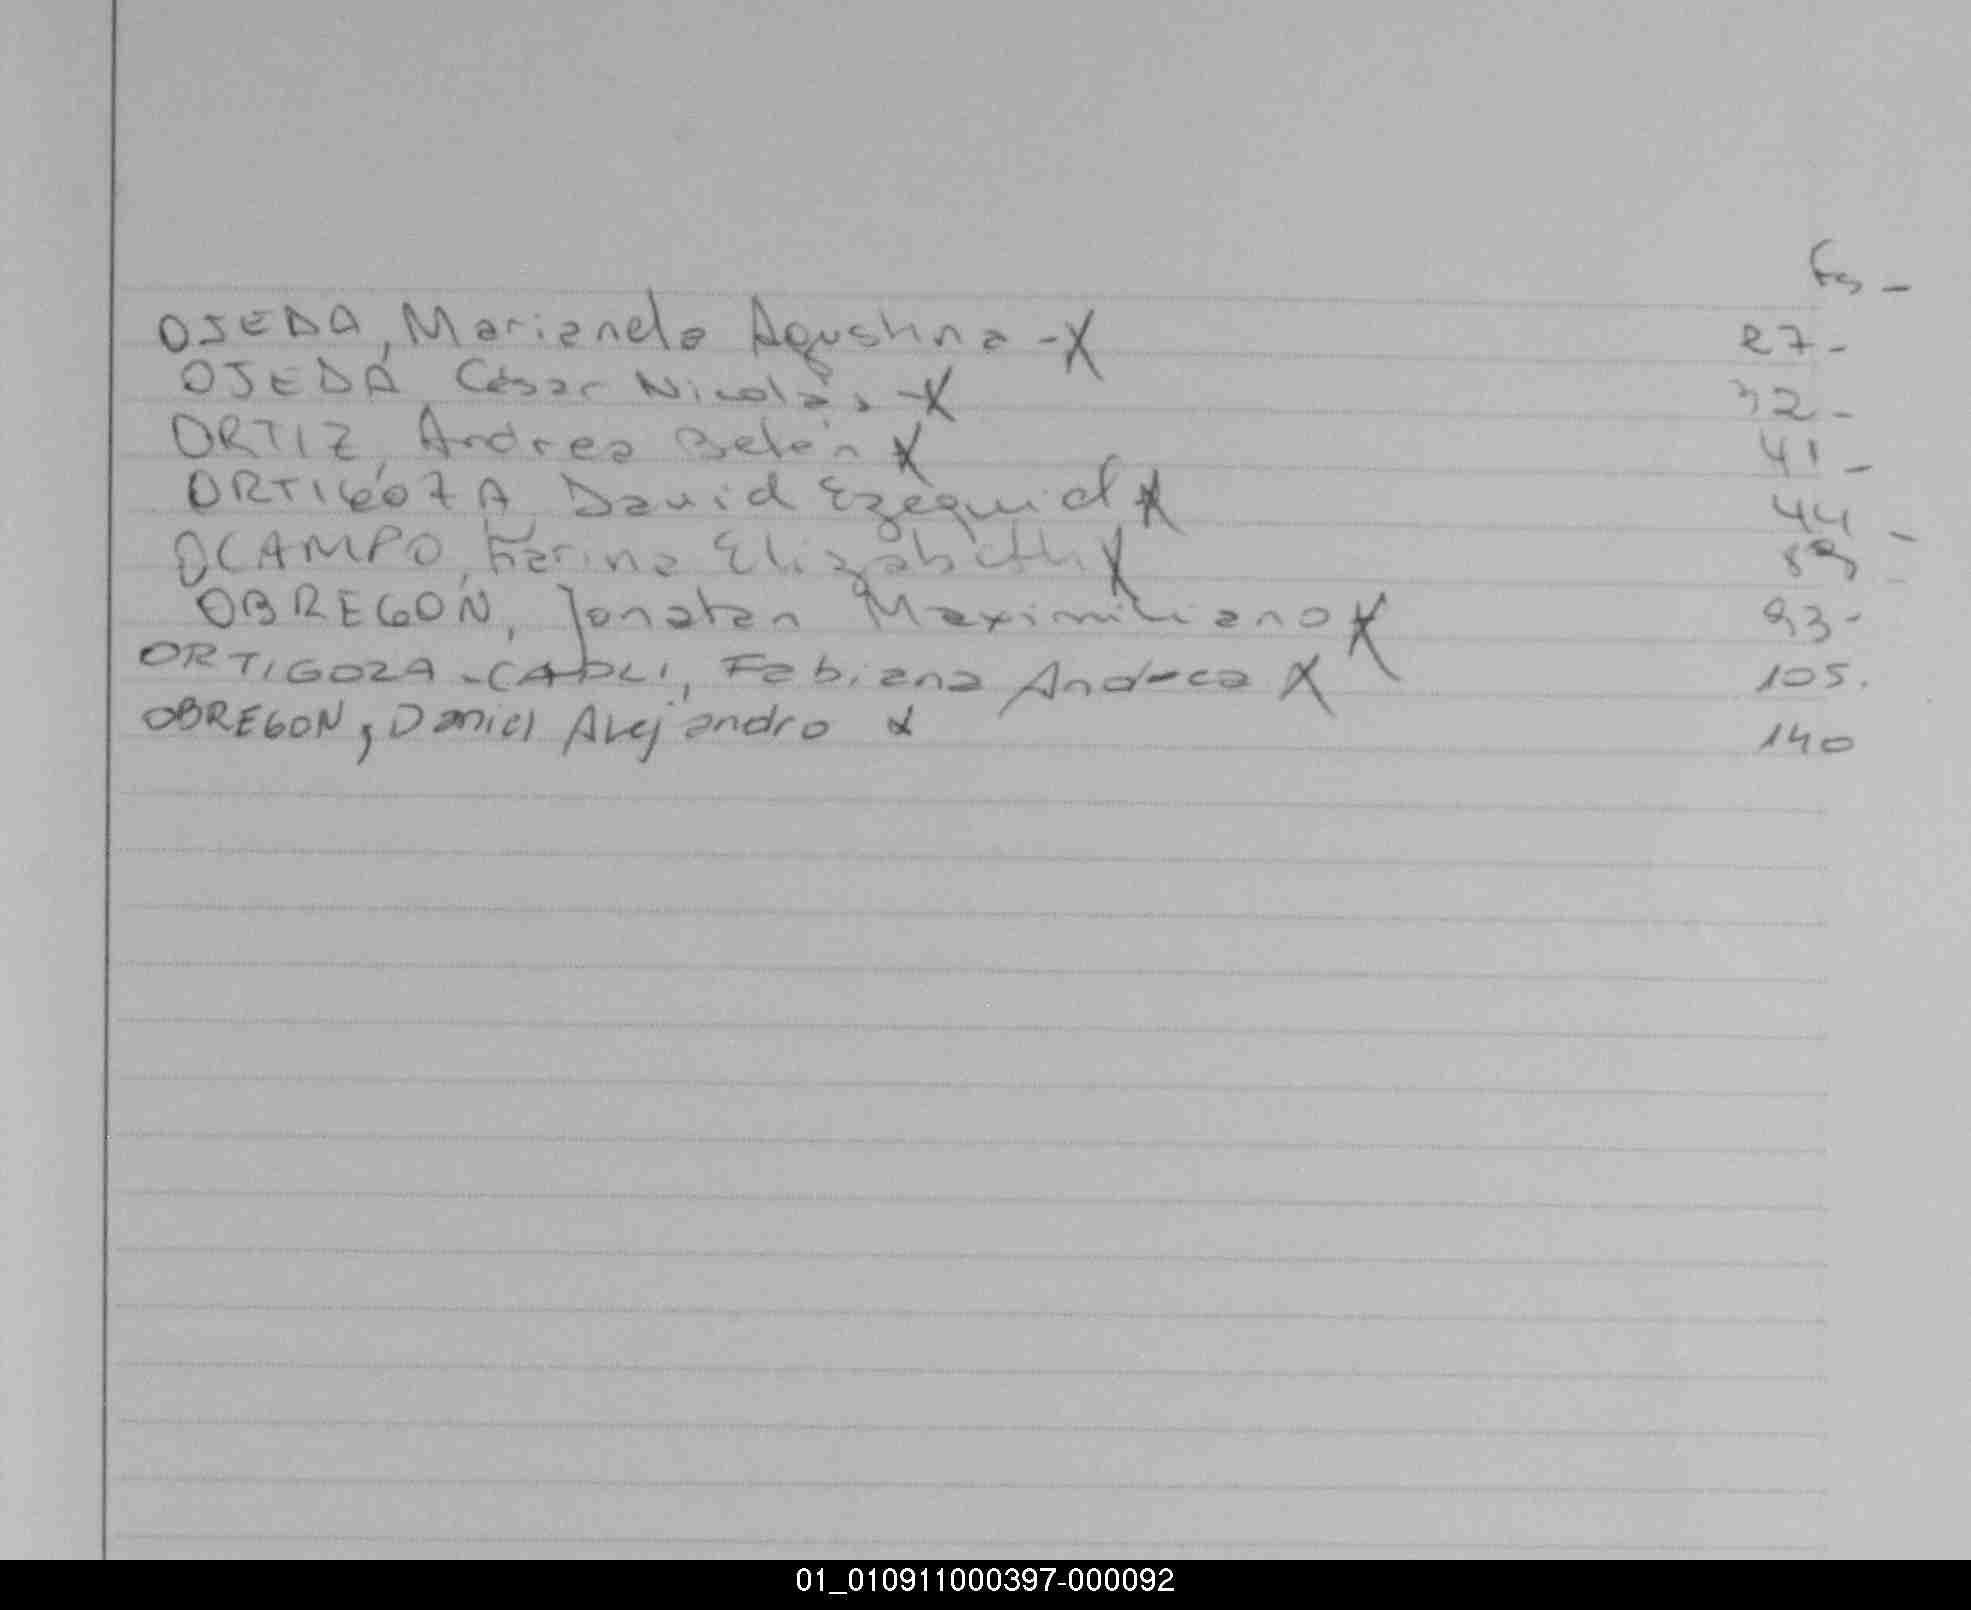 Fs -
OJEDA, Marianela Agustina - X 27 -
OJEDA César Nicolás - X 32 -
ORTIZ, Andrea Belén X 41 -
ORTIGOZA David Ezequiel X 44 -
OCAMPO, Karina Elizabeth X
OBREGON, Jonatan Maximiliano X 93 -
ORTIGOZA - Fabiana Andrea X 105.
OBREGON, Daniel Alejandro X 140
01_010911000397-000092